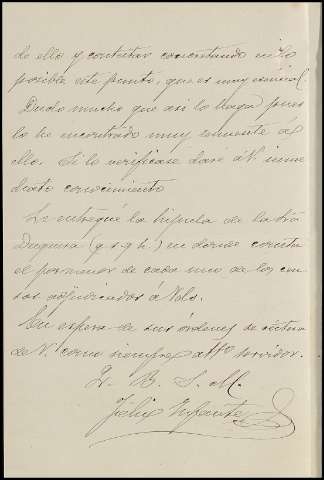 de ello y contestar concretando en lo
posible este punto, que es muy esencial.
Dudo mucho que así lo haga pues
lo he encontrado muy renuente á
ello. Si lo verificase daré á V. inme
diato conocimiento
Le entregué la hijuela de la Srª
Duquesa (q. s. g. h.) en donde consta
el pormenor de cada uno de los cen
sos adjudicados á Vds.
En espera de sus órdenes se
de V. como siempre attº servidor.
Q. B. S. M.
Félix Infante